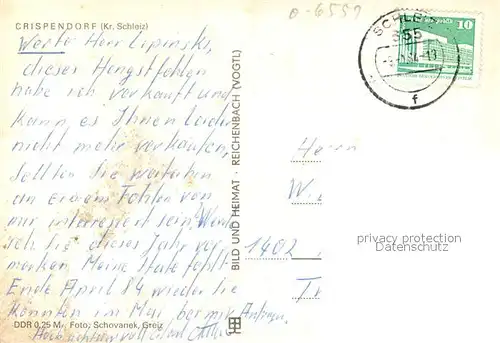 CRISPENDORF (Kr. Schleiz)
Werter Herr Lipinski,
dieses Hengstfohlen
habe ich verkauft und
kann es Ihnen leider
nicht mehr verkaufen,
sollten Sie weiterhin
an einem Fohlen von
mir interessiert sein, werde
ich Sie dieses Jahr vor
merken. Meine Stute fohlt
Ende April 84 wieder Sie
könnten im Mai bei mir Anfragen.
Hochachtungsvoll
DDR 0,25 M Foto: Schovanek, Greiz
BILD UND HEIMAT · REICHENBACH (VOGTL)
0-6551
SCHLEIZ
655
f
10
Herrn
W.
1402
privacy protection
Datenschutz